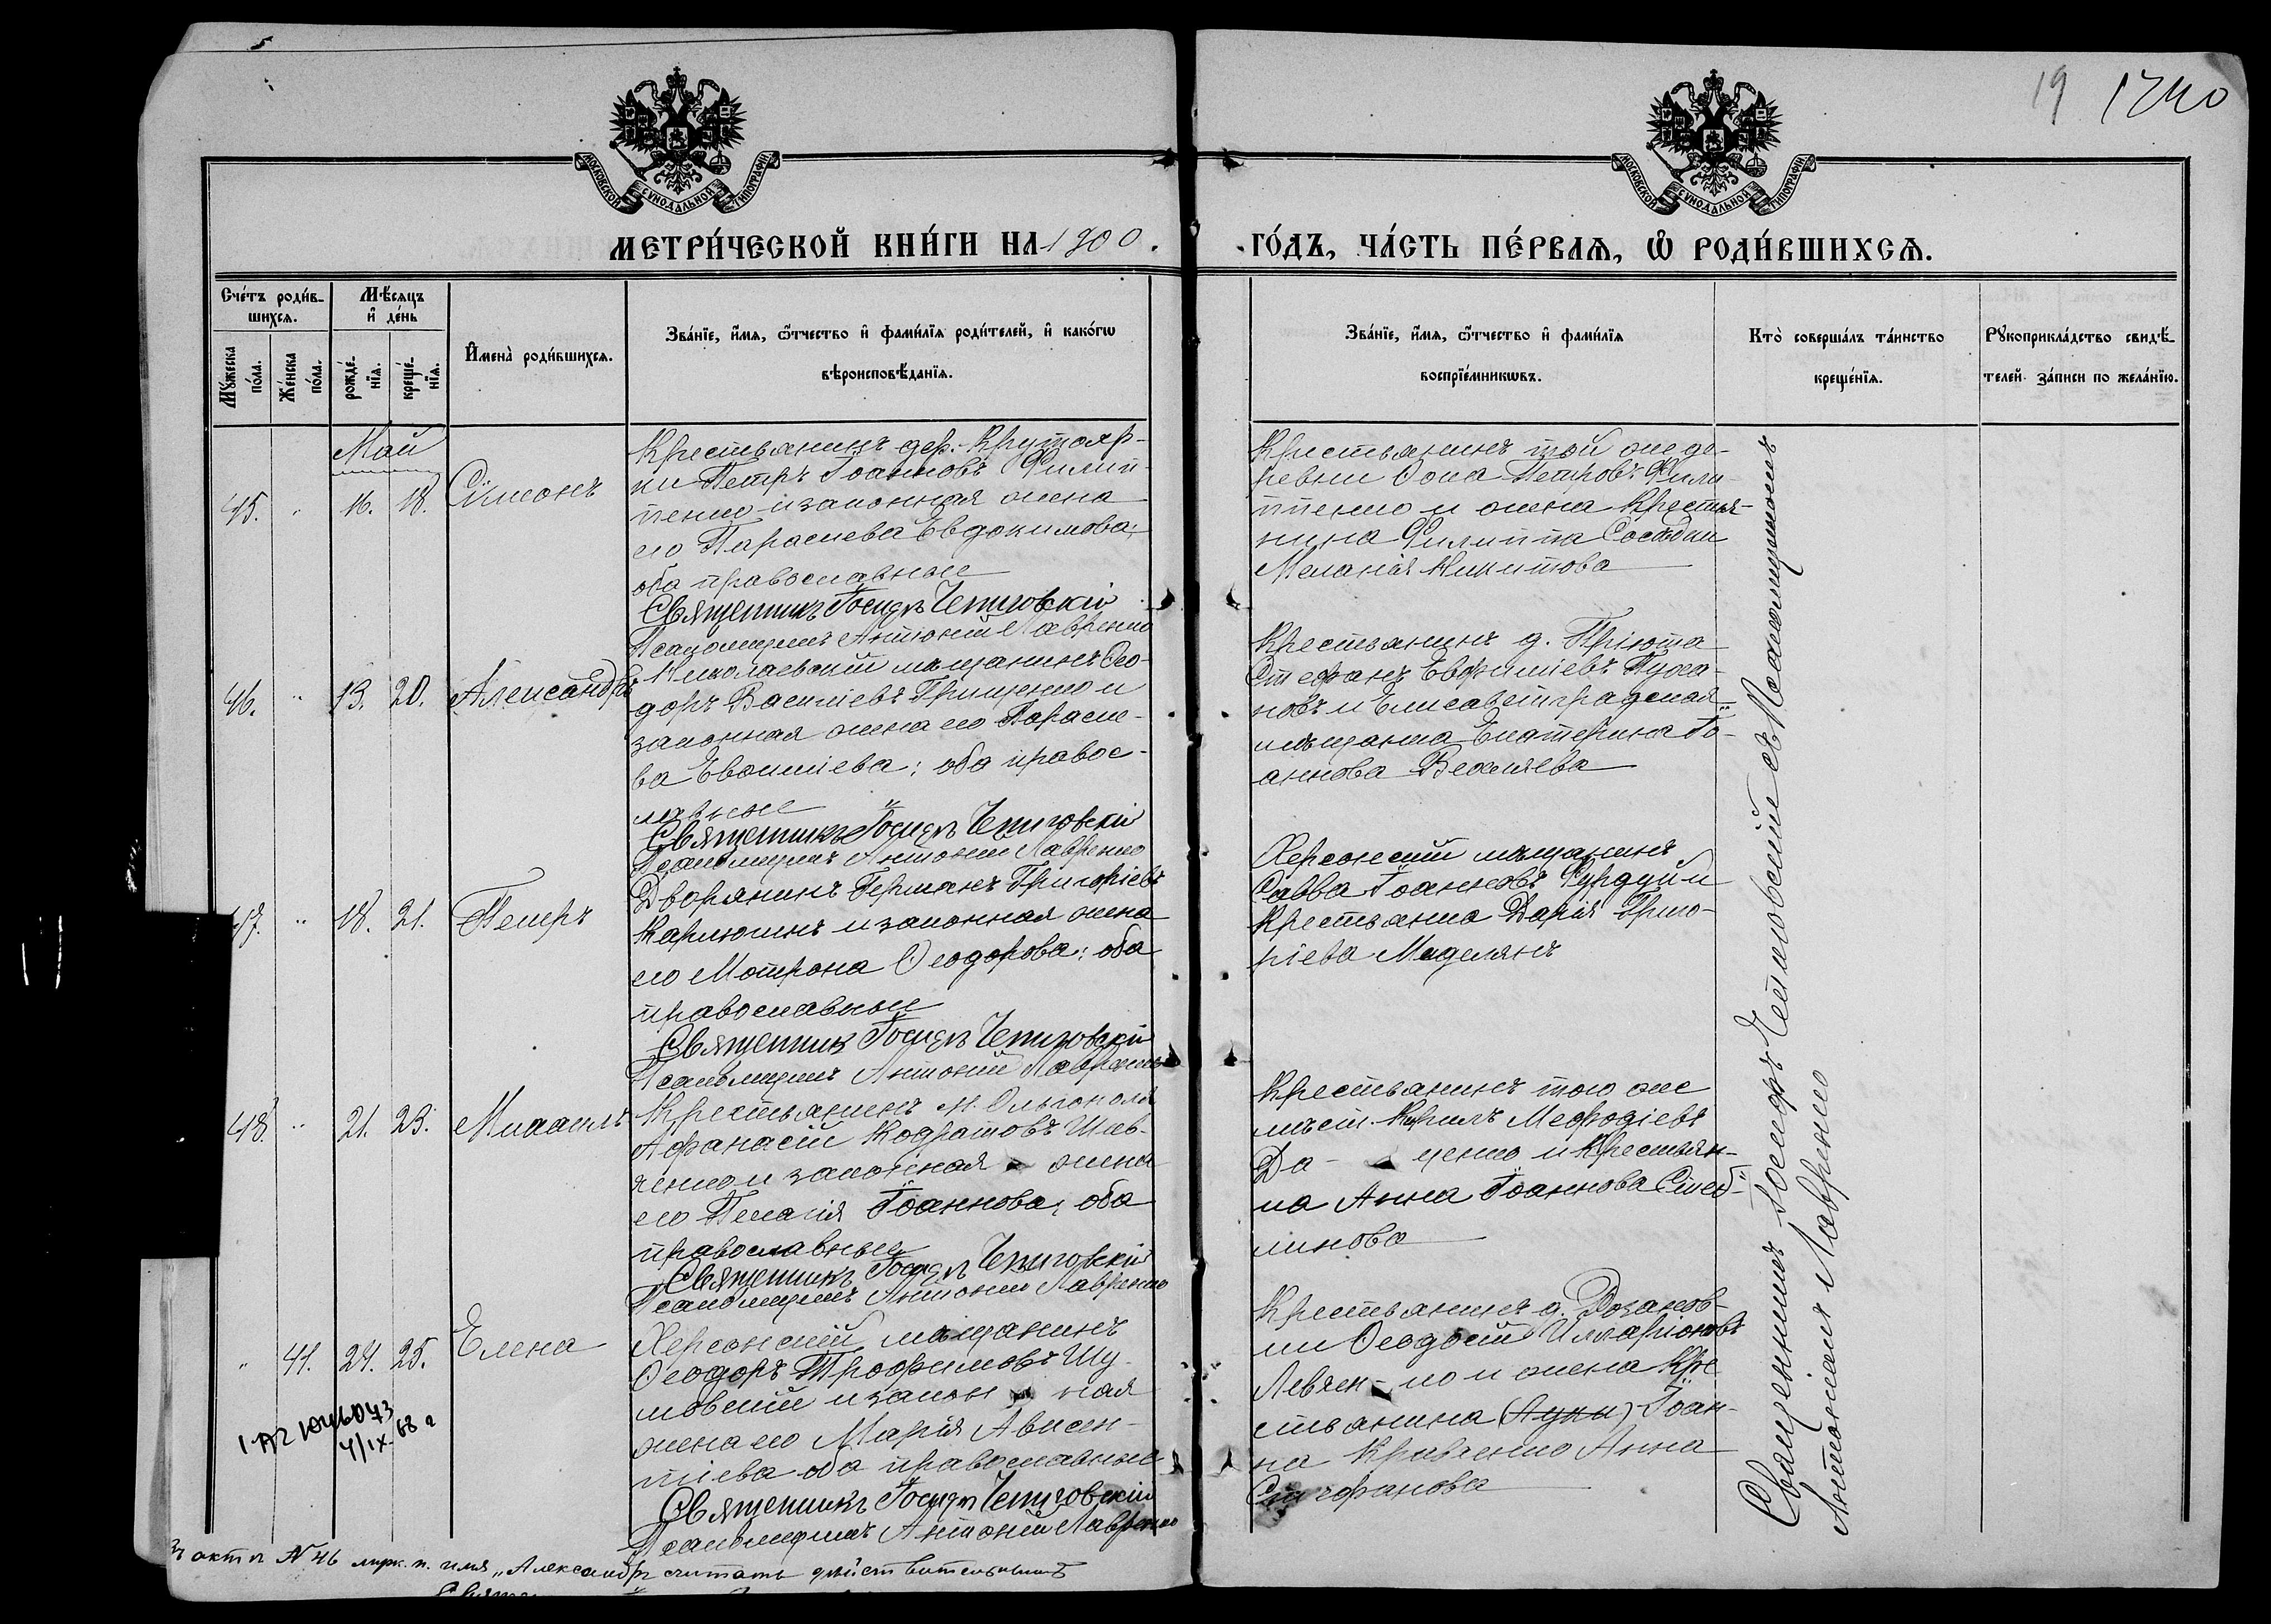 19 1240
МОСКОВСКОЙ СѴНОДАЛЬНОЙ ТИПОГРАФІИ
МОСКОВСКОЙ СѴНОДАЛЬНОЙ ТИПОГРАФІИ
МЕТРИ́ЧЕСКОЙ КНИ́ГИ НА 1900.
ГО́ДЪ, ЧА́СТЬ ПЕ́РВАѦ, Ѡ҆ РОДИ́ВШИХСѦ.
Сче́тъ роди́в-
шихсѧ.
Мꙋ́жеска
по́ла.
Же́нска
по́ла.
Мѣ́сѧцъ
и҆ де́нь
рожде́-
нїѧ.
креще́-
нїѧ.
И҆мена̀ роди́вшихсѧ.
Зва́нїе, и҆́мѧ, ѻ҆́тчество и҆ фами́лїѧ роди́телей, и҆ како́гѡ
вѣроисповѣ́данїѧ.
Зва́нїе, и҆́мѧ, ѻ҆́тчество и҆ фами́лїѧ
воспрїе́мникѡвъ.
Кто̀ соверша́лъ та́инство
креще́нїѧ.
Рꙋкоприкла́дство свидѣ́-
телей за́писи по жела́нїю.
Май
45. " 16. 18. Сѵмеонъ
Крестьянинъ дер. Крутояр-
ки Петръ Іоанновъ Филип-
пенко и законная жена
его Параскева Евдокимова;
оба православные
Священникъ Іосифъ Чепиговскій
Псаломщикъ Антоній Лавренко
Крестьянинъ той же де-
ревни Ѳома Петровъ Фили-
ппенко и жена крестья-
нина Филиппа
Меланія Никитова
46. " 13. 20. Александръ
Николаевскій мѣщанинъ Ѳео-
доръ Василіевъ Грищенко и
законная жена его Параске-
ва оба правос-
лавные
Священникъ Іосифъ Чепиговскій
Псаломщикъ Антоній Лавренко
Крестьянинъ д. Пріюта
Стефанъ Евфиміевъ
новъ и Елисаветградская
мѣщанка Екатерина Іо-
аннова
47. " 18. 21. Петръ
Дворянинъ Германъ Григоріевъ
и законная жена
его Мотрона Ѳеодорова; оба
православные
Священникъ Іосифъ Чепиговскій
Псаломщикъ Антоній Лавренко
Херсонскій мѣщанинъ
Савва Іоанновъ Фурдуй и
крестьянка Дарія Григо-
ріева Маделянъ
48. " 21. 23. Михаилъ
Крестьянинъ м. Ольгополя
Афанасій Кодратовъ Шев-
ченко и законная жена
его Пелагія Іоаннова; оба
православные
Священникъ Іосифъ Чепиговскій
Псаломщикъ Антоній Лавренко
Крестьянинъ того же
мѣст. Кирилъ Меѳодіевъ
Да- ценко и крестьян-
ка Анна Іоаннова Стеб-
линова
" 41. 24. 25. Елена
Херсонскій мѣщанинъ
Ѳеодоръ Трофимовъ Шу-
мовскій и закон ная
жена его Марія Авксен-
тіева оба православные
Священникъ Іосифъ Чепиговскій
Псаломщикъ Антоній Лавренко
Крестьянинъ д. Розанов-
ки Ѳеодосій Илларіоновъ
Левчен-ко и жена кре
стьянина (Луки) Іоан-
на Кравченко Анна
Стефанова
Священникъ Іосифъ Чепиговскій съ Псаломщикомъ
Антоніемъ Лавренко
4/IX-68 г
Въ актѣ № 46 имя „Александръ" считать дѣйствительнымъ